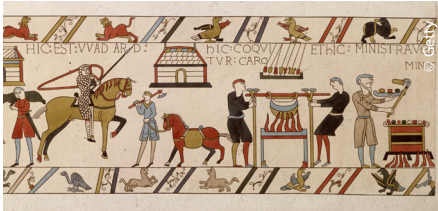 HIC:EST:VVAD ARD:
hIC:COQVI
TVR:CARO
EThIC: MINISTRAV
MIN
© Getty